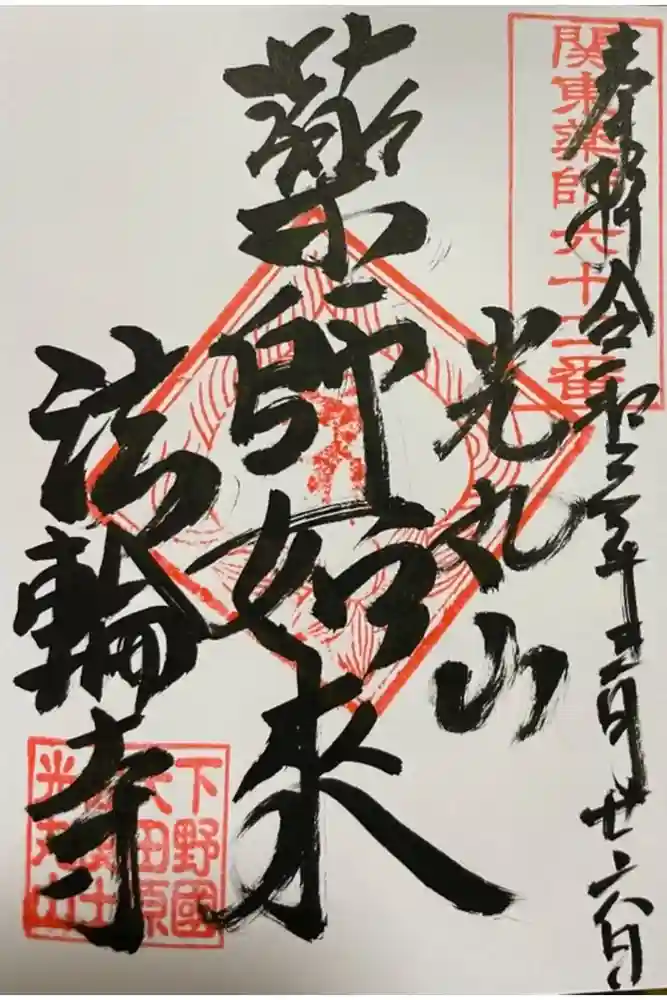 奉拝 令和二年十二月廿六日
関東薬師六十二番
光丸山
薬師如来
法輪寺
下野國
大田原
光丸山